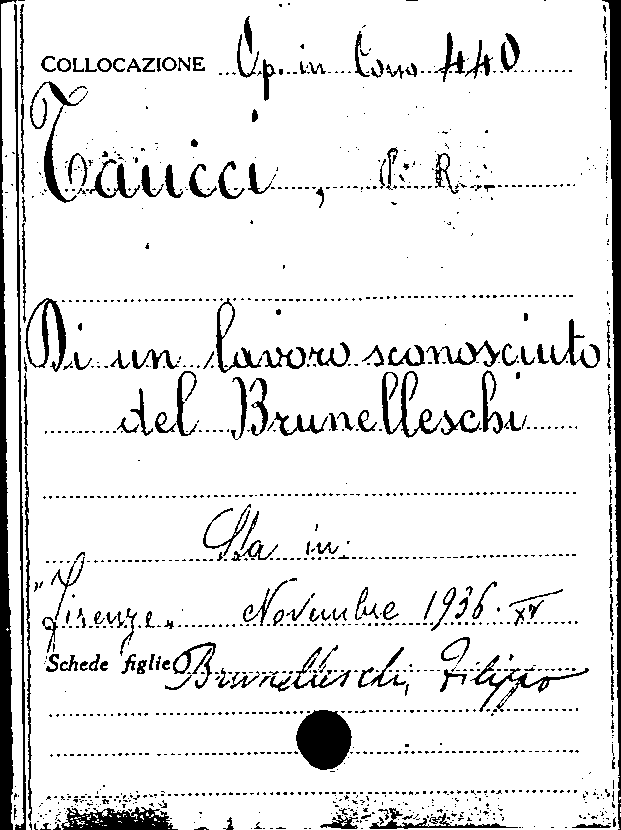 COLLOCAZIONE Op. in Cons 440
Taucci, P. R.
Di un lavoro sconosciuto
del Brunelleschi
Sta in:
"Firenze" Novembre 1936. XV
Schede figlie Brunelleschi, Filippo